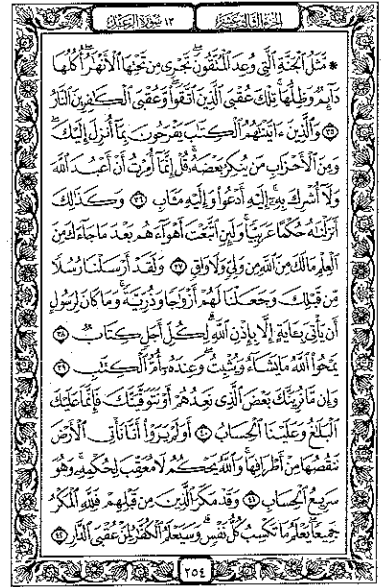 الجزء الثالث عشر ١٣ سورة الرعد
۞ مَّثَلُ ٱلْجَنَّةِ ٱلَّتِى وُعِدَ ٱلْمُتَّقُونَ تَجْرِى مِن تَحْتِهَا ٱلْأَنْهَٰرُ أُكُلُهَا
دَآئِمٌ وَظِلُّهَا تِلْكَ عُقْبَى ٱلَّذِينَ ٱتَّقَوا۟ وَّعُقْبَى ٱلْكَٰفِرِينَ ٱلنَّارُ
٣٥ وَٱلَّذِينَ ءَاتَيْنَٰهُمُ ٱلْكِتَٰبَ يَفْرَحُونَ بِمَآ أُنزِلَ إِلَيْكَ
وَمِنَ ٱلْأَحْزَابِ مَن يُنكِرُ بَعْضَهُۥ قُلْ إِنَّمَآ أُمِرْتُ أَنْ أَعْبُدَ ٱللَّهَ
وَلَآ أُشْرِكَ بِهِۦٓ إِلَيْهِ أَدْعُوا۟ وَإِلَيْهِ مَـَٔابِ ٣٦ وَكَذَٰلِكَ
أَنزَلْنَٰهُ حُكْمًا عَرَبِيًّا وَلَئِنِ ٱتَّبَعْتَ أَهْوَآءَهُم بَعْدَ مَا جَآءَكَ مِنَ
ٱلْعِلْمِ مَا لَكَ مِنَ ٱللَّهِ مِن وَلِىٍّ وَلَا وَاقٍ ٣٧ وَلَقَدْ أَرْسَلْنَا رُسُلًا
مِّن قَبْلِكَ وَجَعَلْنَا لَهُمْ أَزْوَٰجًا وَذُرِّيَّةً وَمَا كَانَ لِرَسُولٍ
أَن يَأْتِىَ بِـَٔايَةٍ إِلَّا بِإِذْنِ ٱللَّهِ لِكُلِّ أَجَلٍ كِتَابٌ ٣٨
يَمْحُوا۟ ٱللَّهُ مَا يَشَآءُ وَيُثْبِتُ وَعِندَهُۥٓ أُمُّ ٱلْكِتَٰبِ ٣٩
وَإِن مَّا نُرِيَنَّكَ بَعْضَ ٱلَّذِى نَعِدُهُمْ أَوْ نَتَوَفَّيَنَّكَ فَإِنَّمَا عَلَيْكَ
ٱلْبَلَٰغُ وَعَلَيْنَا ٱلْحِسَابُ ٤٠ أَوَلَمْ يَرَوْا۟ أَنَّا نَأْتِى ٱلْأَرْضَ
نَنقُصُهَا مِنْ أَطْرَافِهَا وَٱللَّهُ يَحْكُمُ لَا مُعَقِّبَ لِحُكْمِهِۦ وَهُوَ
سَرِيعُ ٱلْحِسَابِ ٤١ وَقَدْ مَكَرَ ٱلَّذِينَ مِن قَبْلِهِمْ فَلِلَّهِ ٱلْمَكْرُ
جَمِيعًا يَعْلَمُ مَا تَكْسِبُ كُلُّ نَفْسٍ وَسَيَعْلَمُ ٱلْكُفَّٰرُ لِمَنْ عُقْبَى ٱلدَّارِ ٤٢
٢٥٤